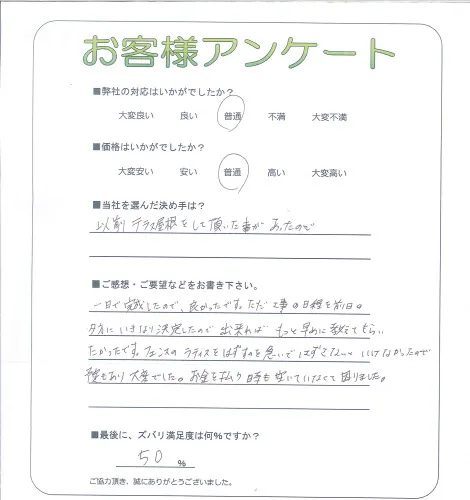 お客様アンケート
■弊社の対応はいかがでしたか?
大変良い 良い 普通 不満 大変不満
■価格はいかがでしたか?
大変安い 安い 普通 高い 大変高い
■当社を選んだ決め手は?
以前テラス屋根をして頂いた事があったので
■ご感想・ご要望などをお書き下さい。
一日で完成したので、良かったです。ただ工事の日程を前日の
夕方にいきなり決定したので出来れば もっと早めに教えてもらい
たかったです。フェンスのラティスをはずすのを急いではずさないと いけなかったので
もあり大変でした。お金を払う日時も空いていなくて困りました。
■最後に、ズバリ満足度は何%ですか?
50 %
ご協力頂き、誠にありがとうございました。